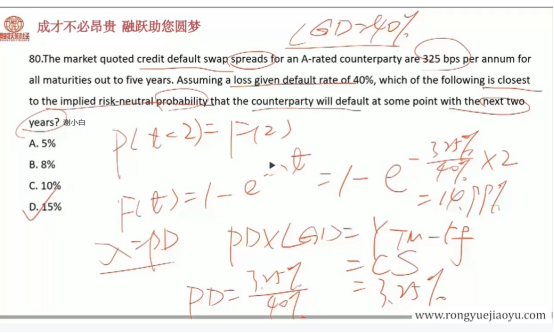 成才不必昂贵 融跃助您圆梦
LGD=40%
80.The market quoted credit default swap spreads for an A-rated counterparty are 325 bps per annum for
all maturities out to five years. Assuming a loss given default rate of 40%, which of the following is closest
to the implied risk-neutral probability that the counterparty will default at some point with the next two
years? 谢小白
A. 5%
B. 8%
C. 10%
D. 15%
P(t<2)=F(2)
F(t)=1-e t =1-e -3.25%/40% ×2
=14.99%
λ=PD
PD×LGD=YTM-rf
=CS
=3.25%
PD=3.25%/40%
www.rongyuejiaoyu.com